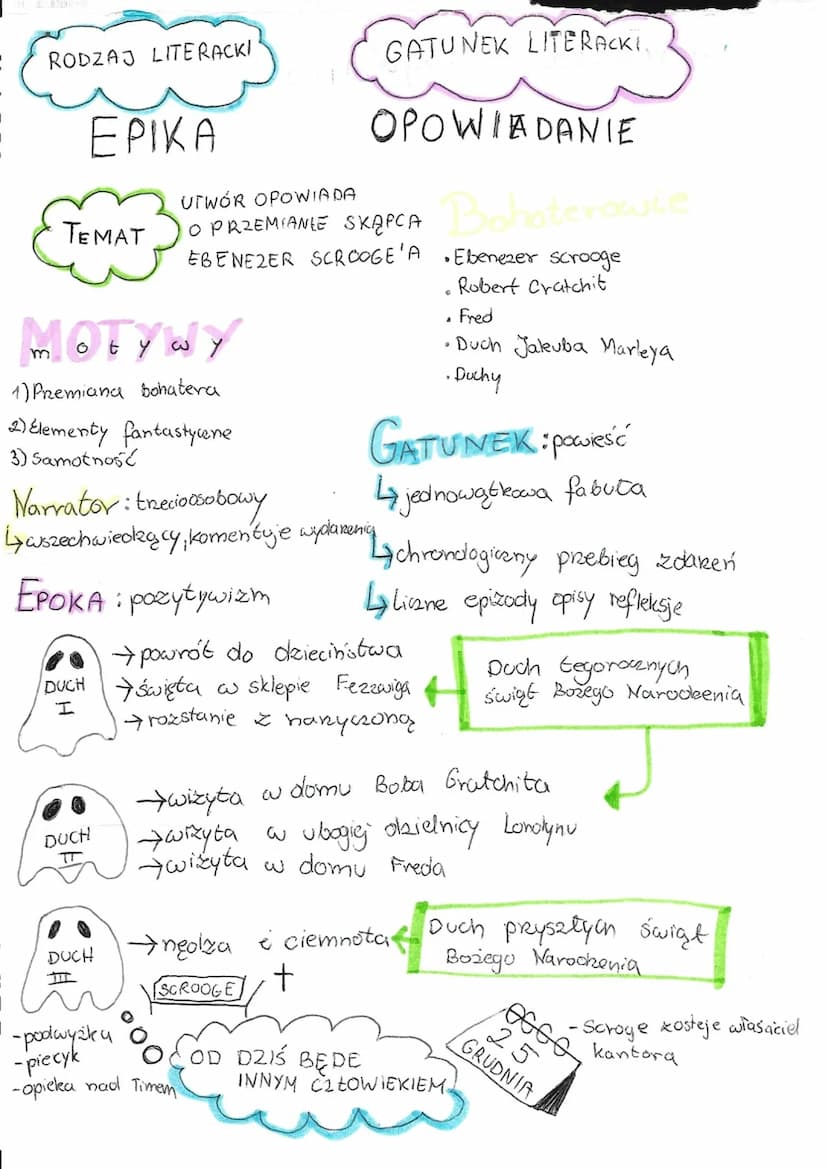 RODZAJ LITERACKI
EPIKA
GATUNEK LITERACKI
OPOWIADANIE
TEMAT
UTWÓR OPOWIADA
O PRZEMIANIE SKĄPCA
EBENEZER SCROOGE'A
Bohaterowie
• Ebenezer scrooge
• Robert Cratchit
• Fred
• Duch Jakuba Marleya
• Duchy
MOTYWY
motywy
1) Przemiana bohatera
2) Elementy fantastyczne
3) Samotność
Narrator: trzecioosobowy
↳ wszechwiedzący, komentuje wydarzenia
EPOKA: pozytywizm
GATUNEK: powieść
↳ jednowątkowa fabuła
↳ chronologiczny przebieg zdarzeń
↳ liczne epizody opisy refleksje
DUCH
I
→ powrót do dzieciństwa
→ święta w sklepie Fezzwiga
→ rozstanie z narzyczoną
Duch tegorocznych
świąt Bożego Narodzenia
DUCH
II
→ wizyta w domu Boba Gratchita
→ wizyta w ubogiej dzielnicy Londynu
→ wizyta w domu Freda
DUCH
III
→ nędza i ciemnota
Duch przyszłych świąt
Bożego Narodzenia
SCROOGE
- podwyżka
- piecyk
- opieka nad Timem
OD DZIŚ BĘDE
INNYM CZŁOWIEKIEM
25
GRUDNIA
- Scroge zosteje właściciel
kantora